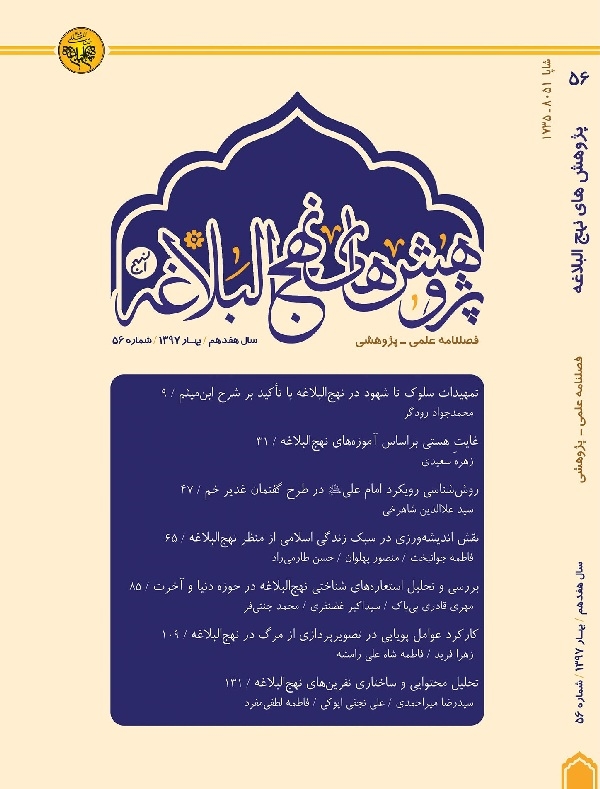 پژوهش‌های نهج البلاغه
فصلنامه علمی - پژوهشی
سال هفدهم / بهار ۱۳۹۷ / شماره ۵۶
تمهیدات سلوک تا شهود در نهج‌البلاغه با تأکید بر شرح ابن‌میثم / ۹
محمدجواد رودگر
غایت هستی براساس آموزه‌های نهج‌البلاغه / ۳۱
زهره سعیدی
روش‌شناسی رویکرد امام علی در طرح گفتمان غدیر خم / ۴۷
سید علاالدین شاهرخی
نقش اندیشه‌ورزی در سبک زندگی اسلامی از منظر نهج‌البلاغه / ۶۵
فاطمه جوانبخت / منصور پهلوان / حسن طارمی‌راد
بررسی و تحلیل استعاره‌های شناختی نهج‌البلاغه در حوزه دنیا و آخرت / ۸۵
مهری قادری بی‌باک / سیداکبر غضنفری / محمد جنتی‌فر
کارکرد عوامل پویایی در تصویرپردازی از مرگ در نهج‌البلاغه / ۱۰۹
زهرا فرید / فاطمه شاه علی رامشه
تحلیل محتوایی و ساختاری نفرین‌های نهج‌البلاغه / ۱۳۱
سیدرضا میراحمدی / علی نجفی ایوکی / فاطمه لطفی‌مفرد
۵۶
شاپا ۸۰۵۱ - ۱۷۳۵
پژوهش های نهج البلاغه
فصلنامه علمی - پژوهشی
سال هفدهم / بهار ۱۳۹۷ / شماره ۵۶